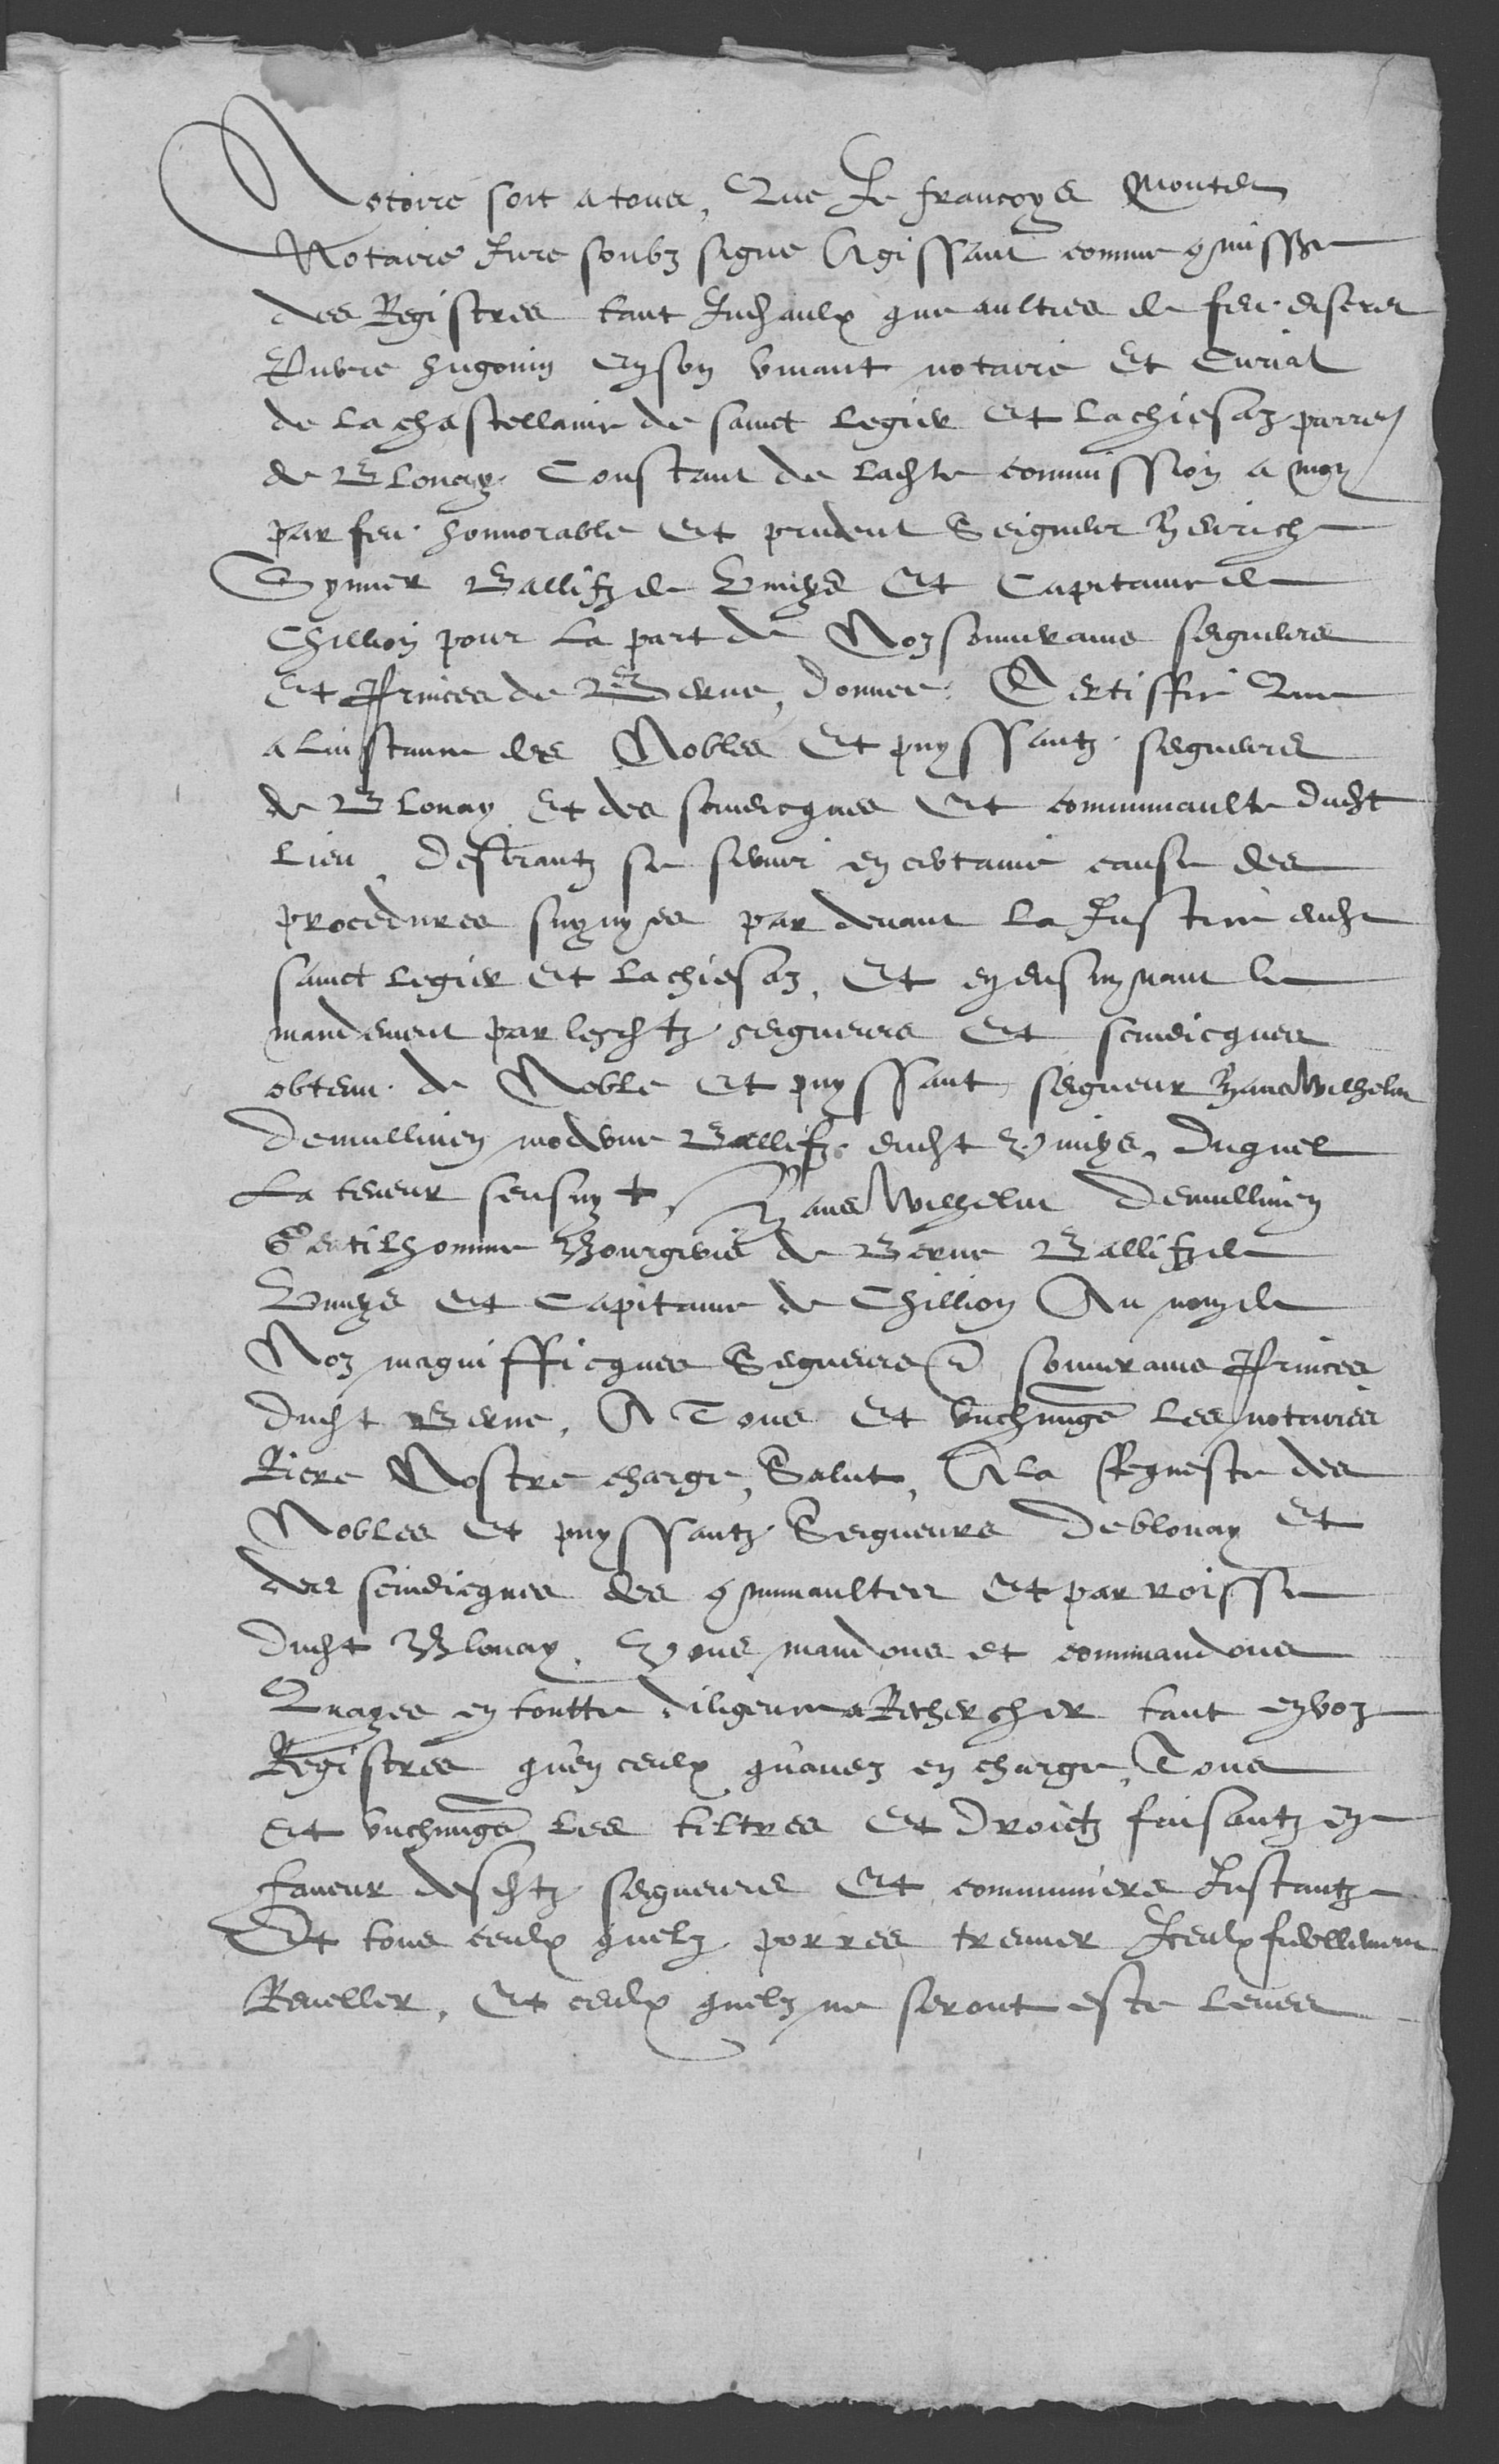 Notoire soit a tous, Que Je françoys Monted
Notaire Jure soubz signe Agissant comme 9missre
des Registres tant Judiaulx que aultres de feu discret
Pierre hugonin en son vivant notaire Et Curial
de la chastellanie de sainct legier Et lachiesaz parroes
de Blonay. Constant de ladite commission a moy
par feu honnorable Et prudent Seigneur Henrich
Tynner Ballifz de Viveys Et Capitaine de
Chillion pour la part de Noz souverains seigneurs
Et Princes de Berne, donnee. Certiffie Que
a linstance des Nobles Et puyssantz seigneurs
de Blonay Et des sindicques Et communaulte dudit
lieu, desirantz se servir en certaine cause des
procedures suyvyes par devant la Justice dudit
sainct legier Et lachiesaz, Et en ensuyvant le
mandement par lesditz seigneurs Et sindicques
obtenu de Noble Et puyssant seigneur Hans Wilhelm
Demullinen moderne Ballifz dudit Viveys, duquel
La teneur sensuyt, Hans Wilhelm Demullinen
Gentilhomme Bourgeois de Berne Ballifz de
Viveys Et Capitaine de Chillion Au nom de
Noz magnifficques Seigneurs Et souverains Princes
dudit Berne, A Tous Et unchungs les notaires
Riere Nostre charge, Salut, A la Requeste des
Nobles Et puyssantz Seigneurs de blonay Et
des sindicques des 9munaultes Et parroisse
dudit Blonay, Vous mandons et commandons
Quayes en toutte diligence a Rechercher tant en voz
Registres qu'en ceulx qu'avez en charge, Tous
Et unchungs les tiltres Et droictz faisantz en
faveur desditz seigneurs Et communiers Instantz
Et tous ceulx quelz porres treuver Iceulx fidellement
Reveller, Et ceulx quelz ne seront este leves